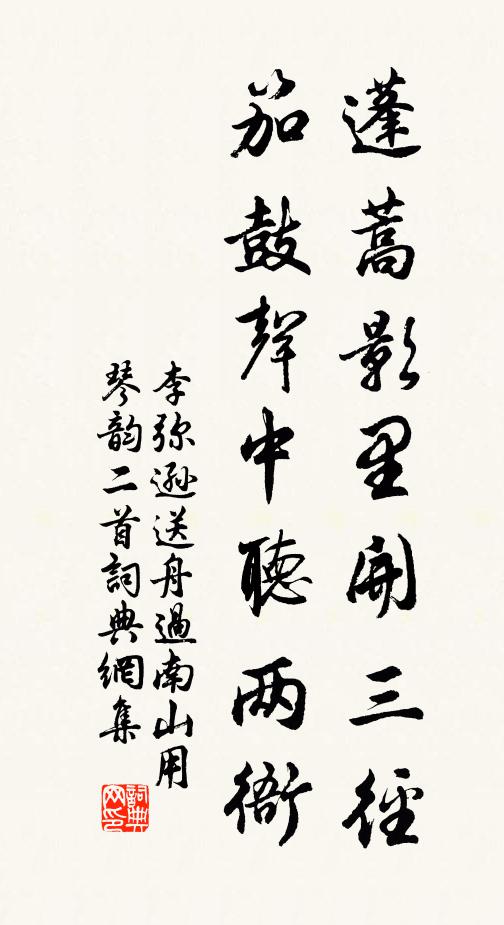 蓬蒿影里開三徑
笳鼓聲中聽两衙
李弥遜送舟過南山用
琴韵二首詞典網集
詞典
网印